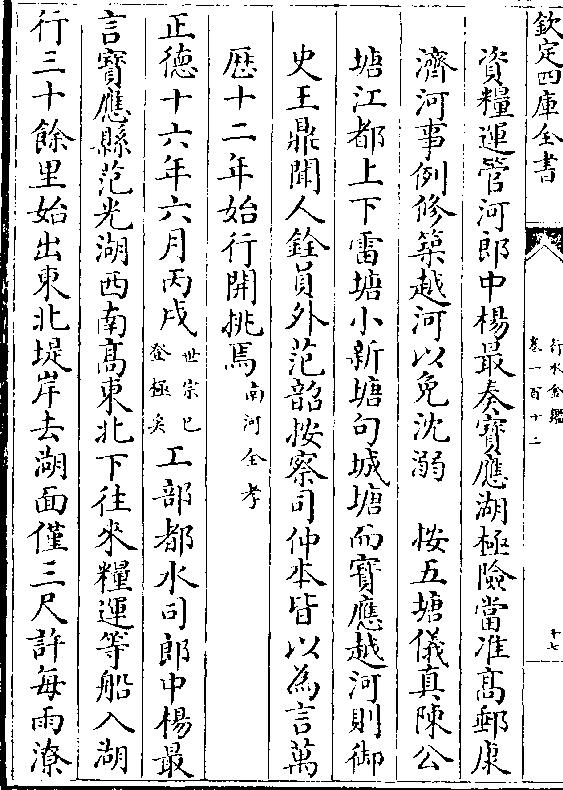 欽定四庫全書
行水金鑑
卷一百十二
十七
資糧運管河郎中楊最奏寶應湖極險當准髙郵康
濟河事例修築越河以免沈溺　按五塘儀真陳公
塘江都上下雷塘小新塘句城塘而寶應越河則御
史王鼎聞人銓員外范韶按察司仲本皆以為言萬
歴十二年始行開挑焉南河全考
正徳十六年六月丙戌世宗已登極矣工部都水司郎中楊最
言寶應縣范光湖西南髙東北下往來糧運等船入湖
行三十餘里始出東北堤岸去湖面僅三尺許每雨潦